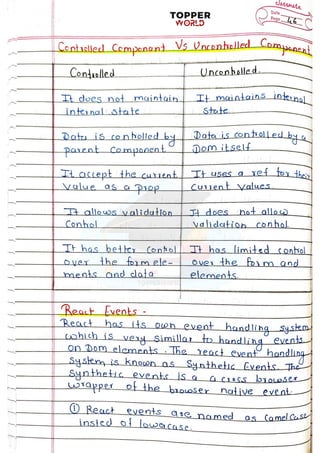 classmate
TOPPER
WORLD
Date
Page 46
Controlled Component Vs Uncontrolled Component
Controlled
Uncontrolled.
It does not maintain
internal state
It maintains internal
state.
Data is controlled by
parent component.
Data is controlled by a
Dom itself
It accept the current
value as a prop
It uses a ref for their
current values.
It allows validation
Control
It does not allow
validation control
It has better control
over the form ele-
ments and data
It has limited control
over the form and
elements.
React Events -
React has its own event handling system
which is very simillar to handling events
on Dom elements. The react event handling
System is known as Synthetic Events. The
Synthetic events is a cross browser
wrapper of the browser native event.
① React events are named as CamelCase
insted of lowercase.